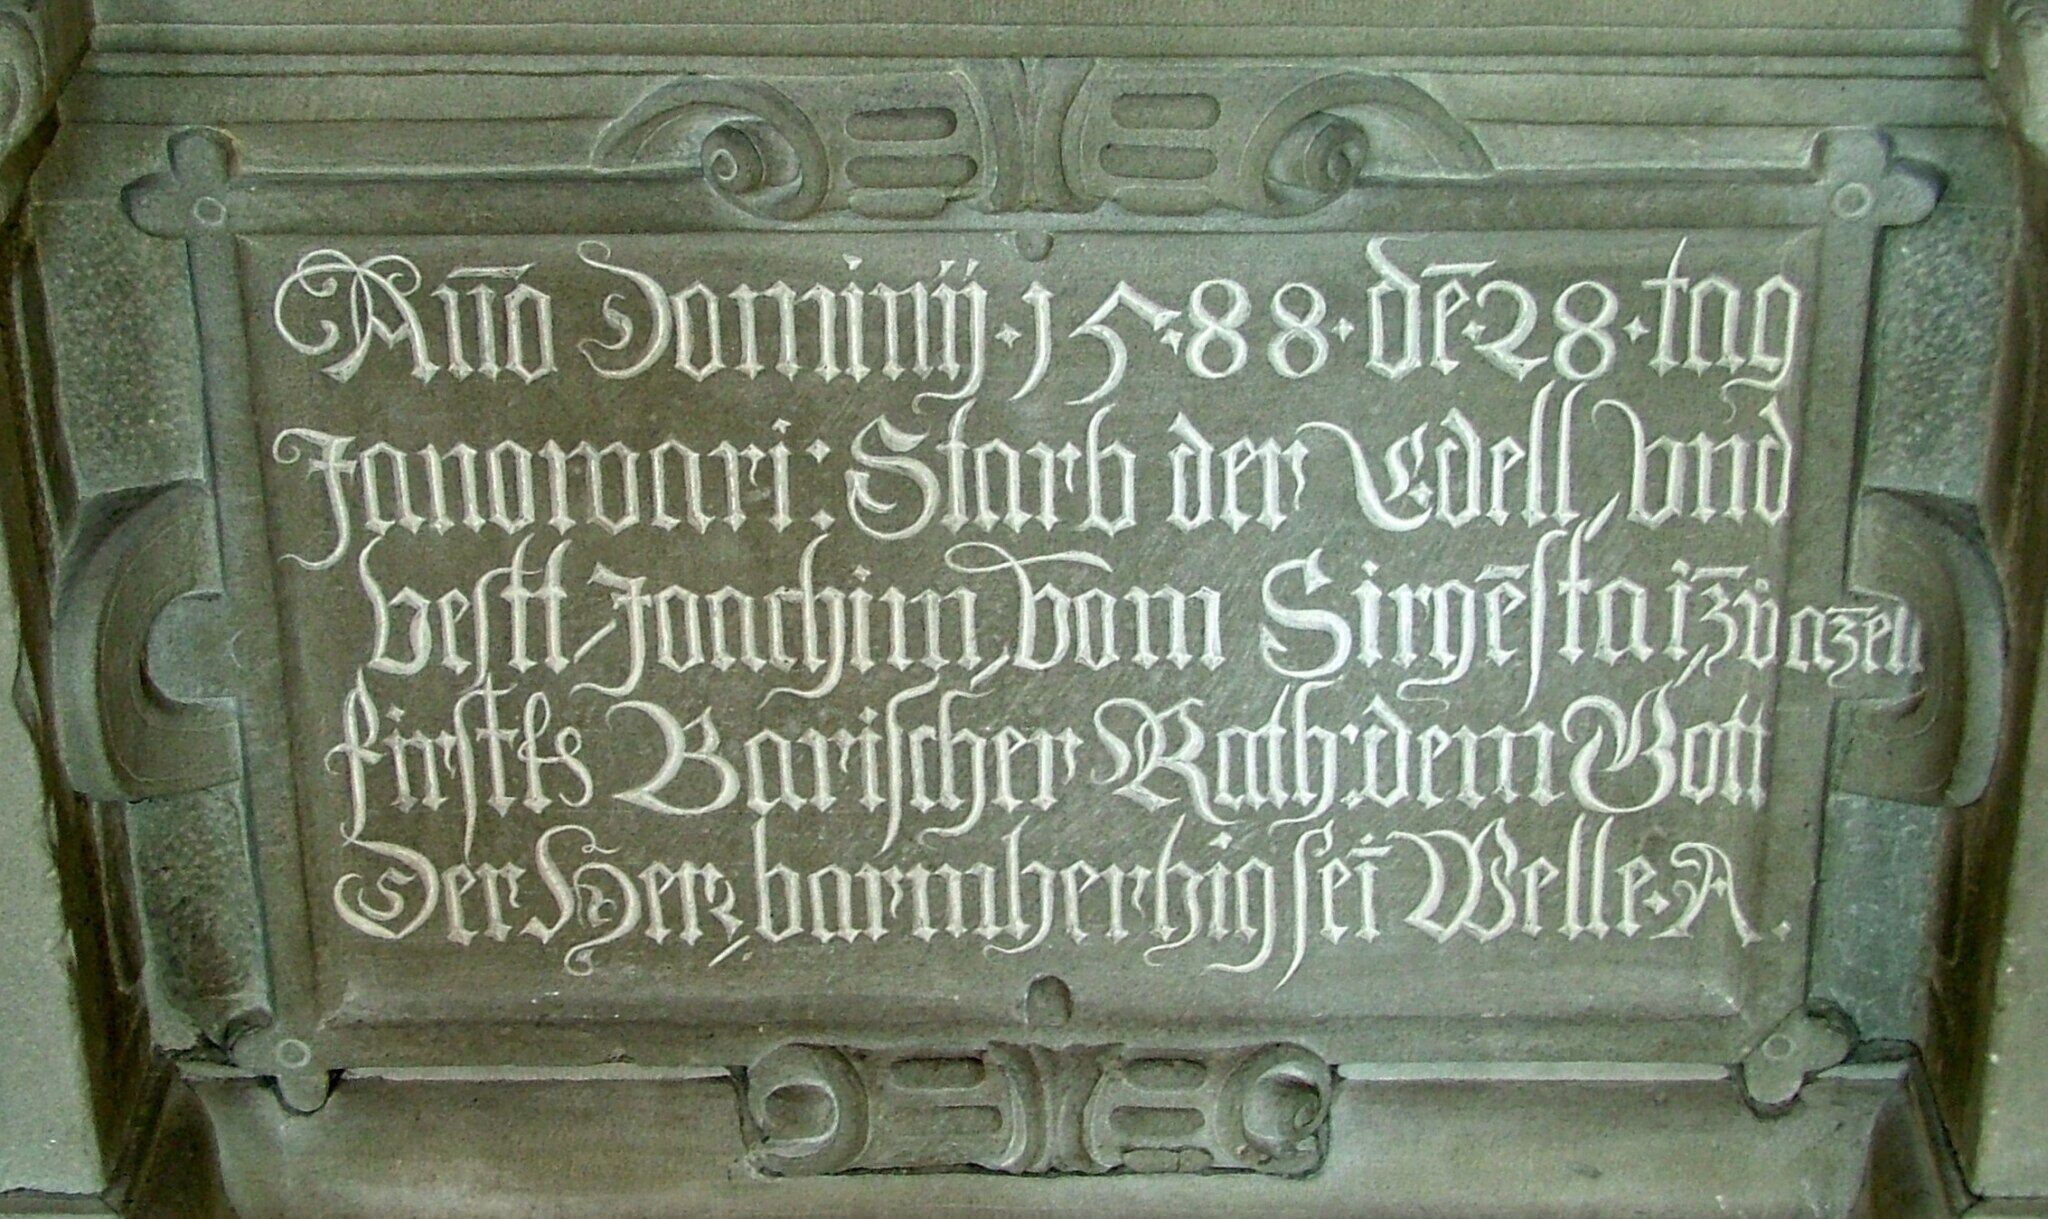 Año Dominÿ · 1 5 · 8 8 · dē · 28 · tag
Janowari : Starb der Edell vnd
vestt / Joachim, vom Sirgēstaī zv̊ azell
firstls Barischer Rath : dem Gott
Der Herr, barmhertzig seī Welle · A .